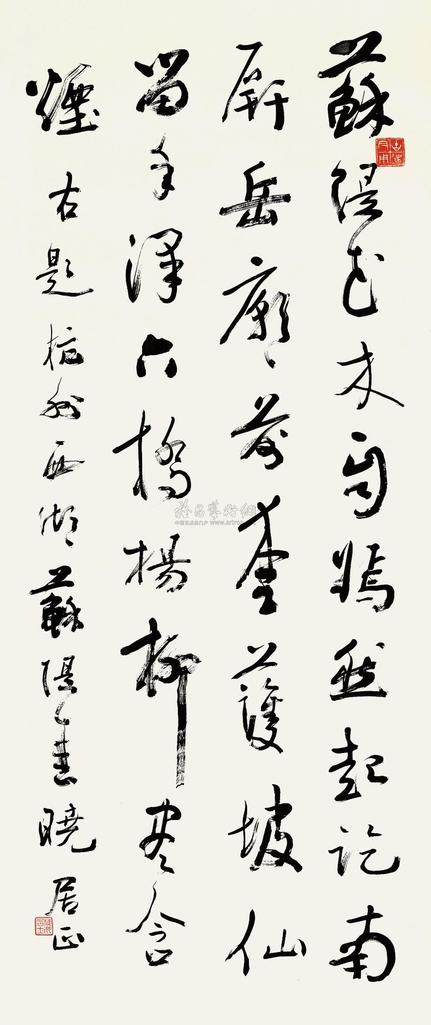 蘇堤花木自嫣然起訖南
屏岳廟前護坡仙
留手澤六橋楊柳盡含
煙 右題杭州西湖蘇堤春曉 居正